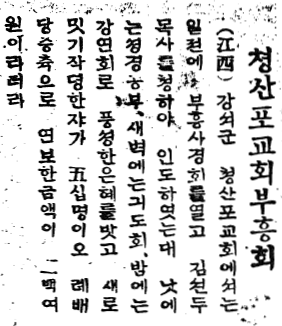 청산포교회부흥회
(江西) 강서군 청산포교회에서는
일전에 부흥사경회를열고 김선두
목사를청하야 인도하엿는대 낫에
는성경공부,새벽에는긔도회,밤에는
강연회로 풍성한은혜를밧고 새로
밋기작뎡한쟈가 五십명이오 례배
당승축으로 연보한금액이 二백여
원이라러라